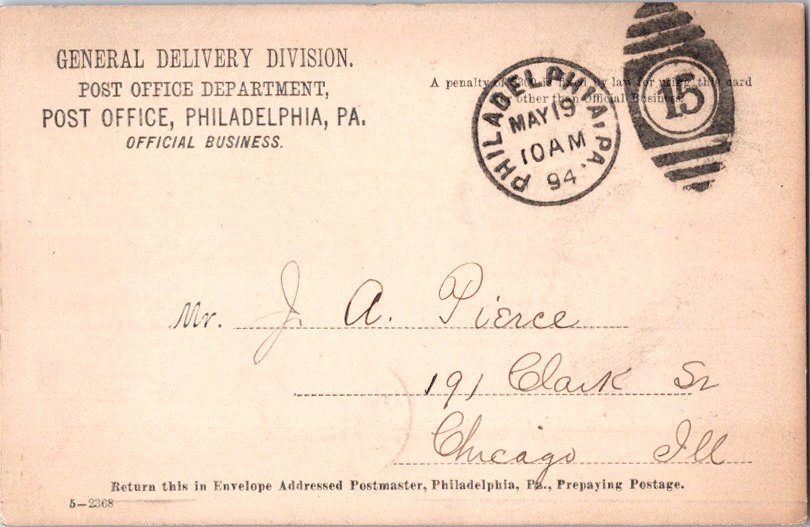 GENERAL DELIVERY DIVISION.
POST OFFICE DEPARTMENT,
POST OFFICE, PHILADELPHIA, PA.
OFFICIAL BUSINESS.
A penalty of $300 is fixed by law for using this card
other than Official Business.
PHILADELPHIA, PA.
MAY 19
10 AM
94.
15
Mr. J. A. Pierce
191 Clark St
Chicago Ill
Return this in Envelope Addressed Postmaster, Philadelphia, Pa., Prepaying Postage.
5—2368